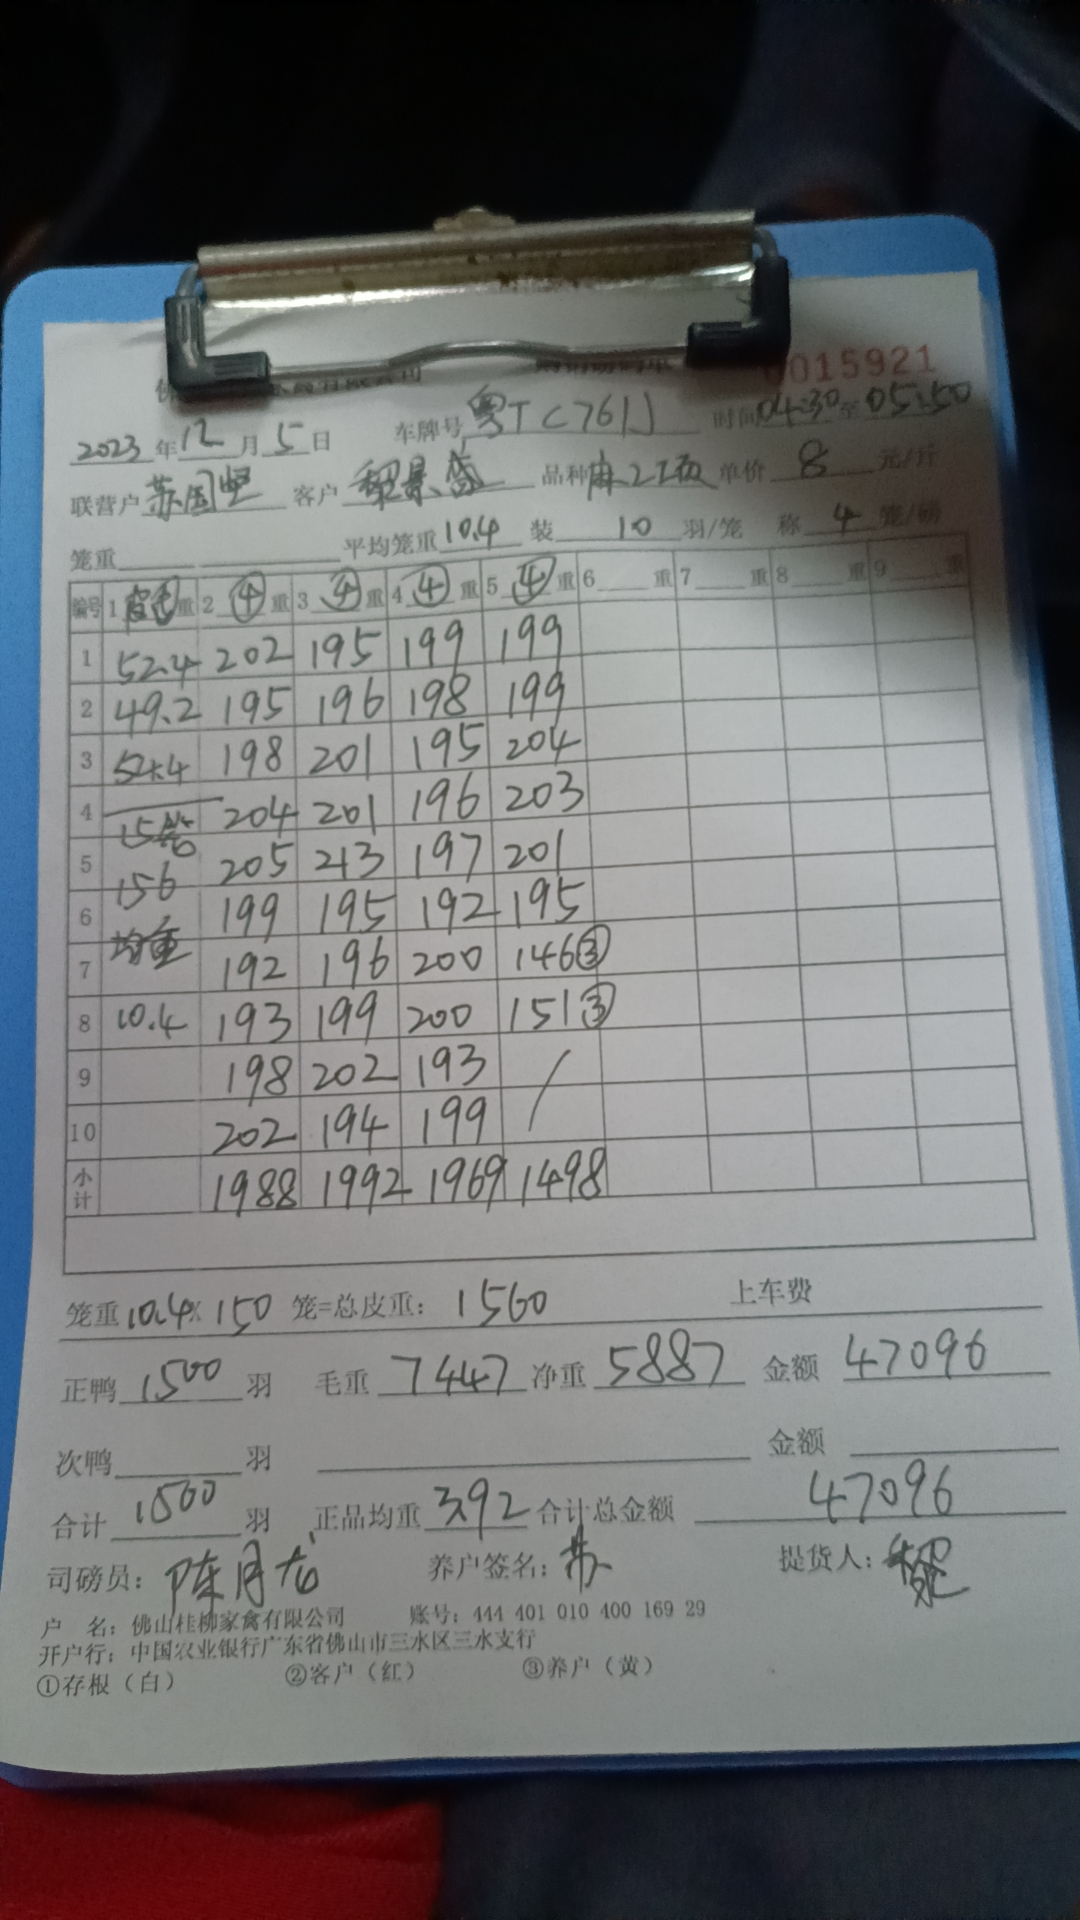 0015921
2023年12月5日 车牌号粤TC761J 时间04:30至05:50
联营户苏国坚 客户黎景 品种麻 单价8元/斤
笼重 平均笼重10.4装10羽/笼 称4笼/磅
编号 1皮毛重 2④重 3④重 4④重 5④重 6重 7重 8重 9重
1 52.4 202 195 199 199
2 49.2 195 196 198 199
3 52.4 198 201 195 204
4 15笼 204 201 196 203
5 156 205 213 197 201
6 均重 199 195 192 195
7 192 196 200 146③
8 10.4 193 199 200 151③
9 198 202 193 /
10 202 194 199
小计 1988 1992 1969 1498
笼重10.4×150笼=总皮重：1560 上车费
正鸭1500羽 毛重7447净重5887 金额47096
次鸭羽 金额
合计1500羽 正品均重3.92合计总金额47096
司磅员：陈月龙 养户签名：苏 提货人：黎
户 名：佛山桂柳家禽有限公司 账号：444 401 010 400 169 29
开户行：中国农业银行广东省佛山市三水区三水支行
①存根（白） ②客户（红） ③养户（黄）